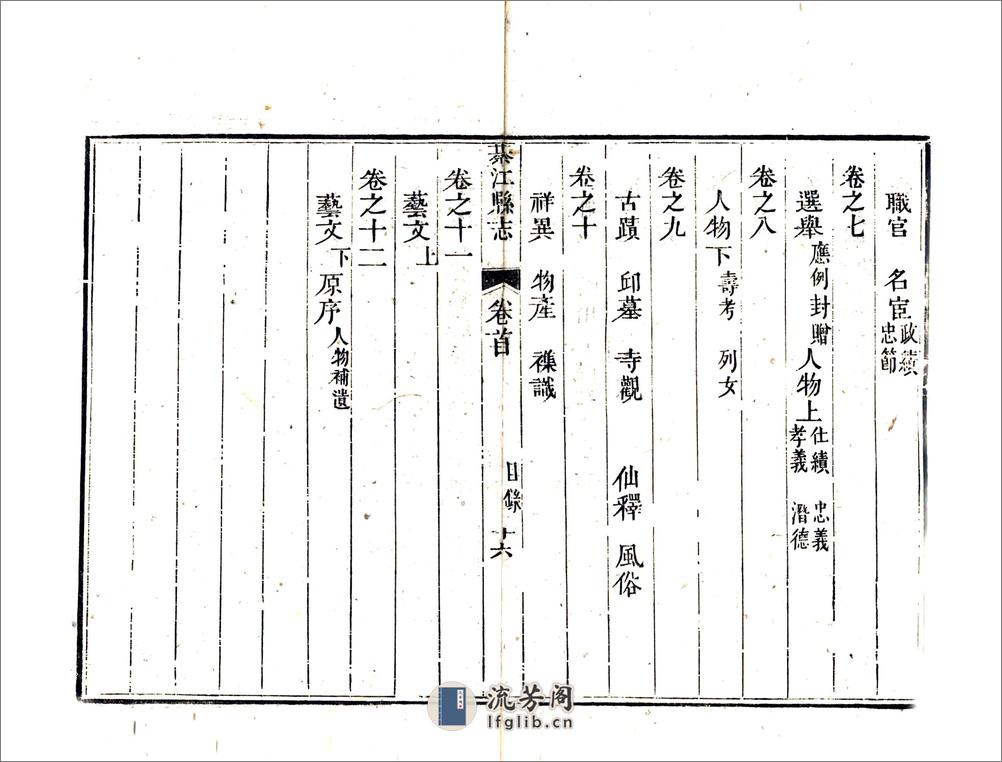 職官　名宦政績忠節
卷之七
選舉應例封贈人物上仕績　忠義孝義　潛德
卷之八
人物下壽考　列女
卷之九
古蹟　邱墓　寺觀　仙釋　風俗
卷之十
祥異　物產　襍識
綦江縣志　卷首　目錄　十六
卷之十一
藝文上
卷之十二
藝文下原序人物補遺
流芳阁
lfglib.cn